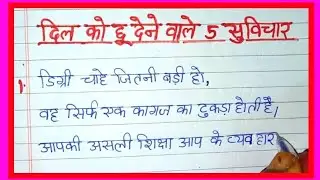 दिल को छू देने वाले 5 सुविचार
1. डिग्री चाहे जितनी बड़ी हो,
वह सिर्फ एक कागज का टुकड़ा होती है,
आपकी असली शिक्षा आप के व्यवहार